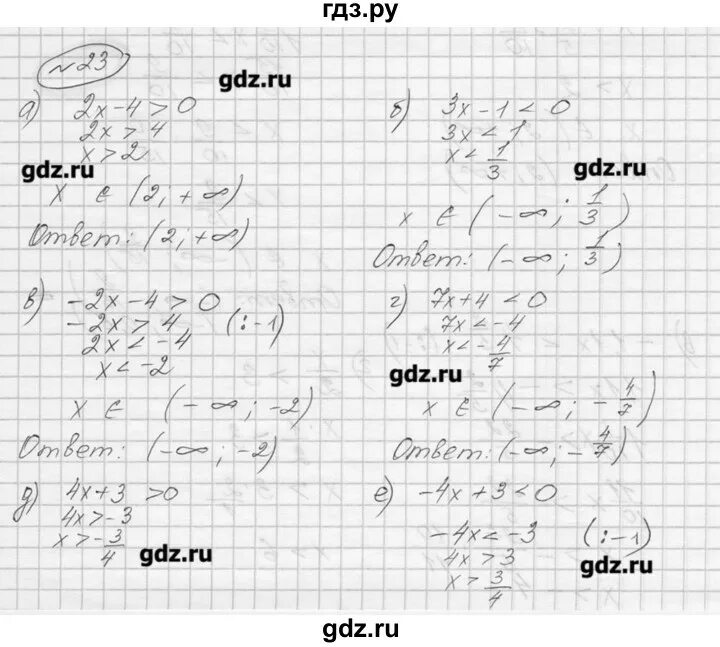 гдз.ру
№23
gdz.ru
а) 2x-4>0
2x>4
x>2
gdz.ru
x ∈ (2; +∞)
Ответ: (2; +∞)
б) 3x-1<0
3x<1
x<1/3
gdz.ru
x ∈ (-∞; 1/3)
Ответ: (-∞; 1/3)
в) -2x-4>0
-2x>4 (:-1)
2x<-4
x<-2
x ∈ (-∞; -2)
Ответ: (-∞; -2)
г) 7x+4<0
7x<-4
x<-4/7
gdz.ru
x ∈ (-∞; -4/7)
Ответ: (-∞; -4/7)
д) 4x+3>0
4x>-3
x>-3/4
gdz.ru
е) -4x+3<0
-4x<-3 (:-1)
4x>3
x>3/4
gdz.ru
gdz.ru